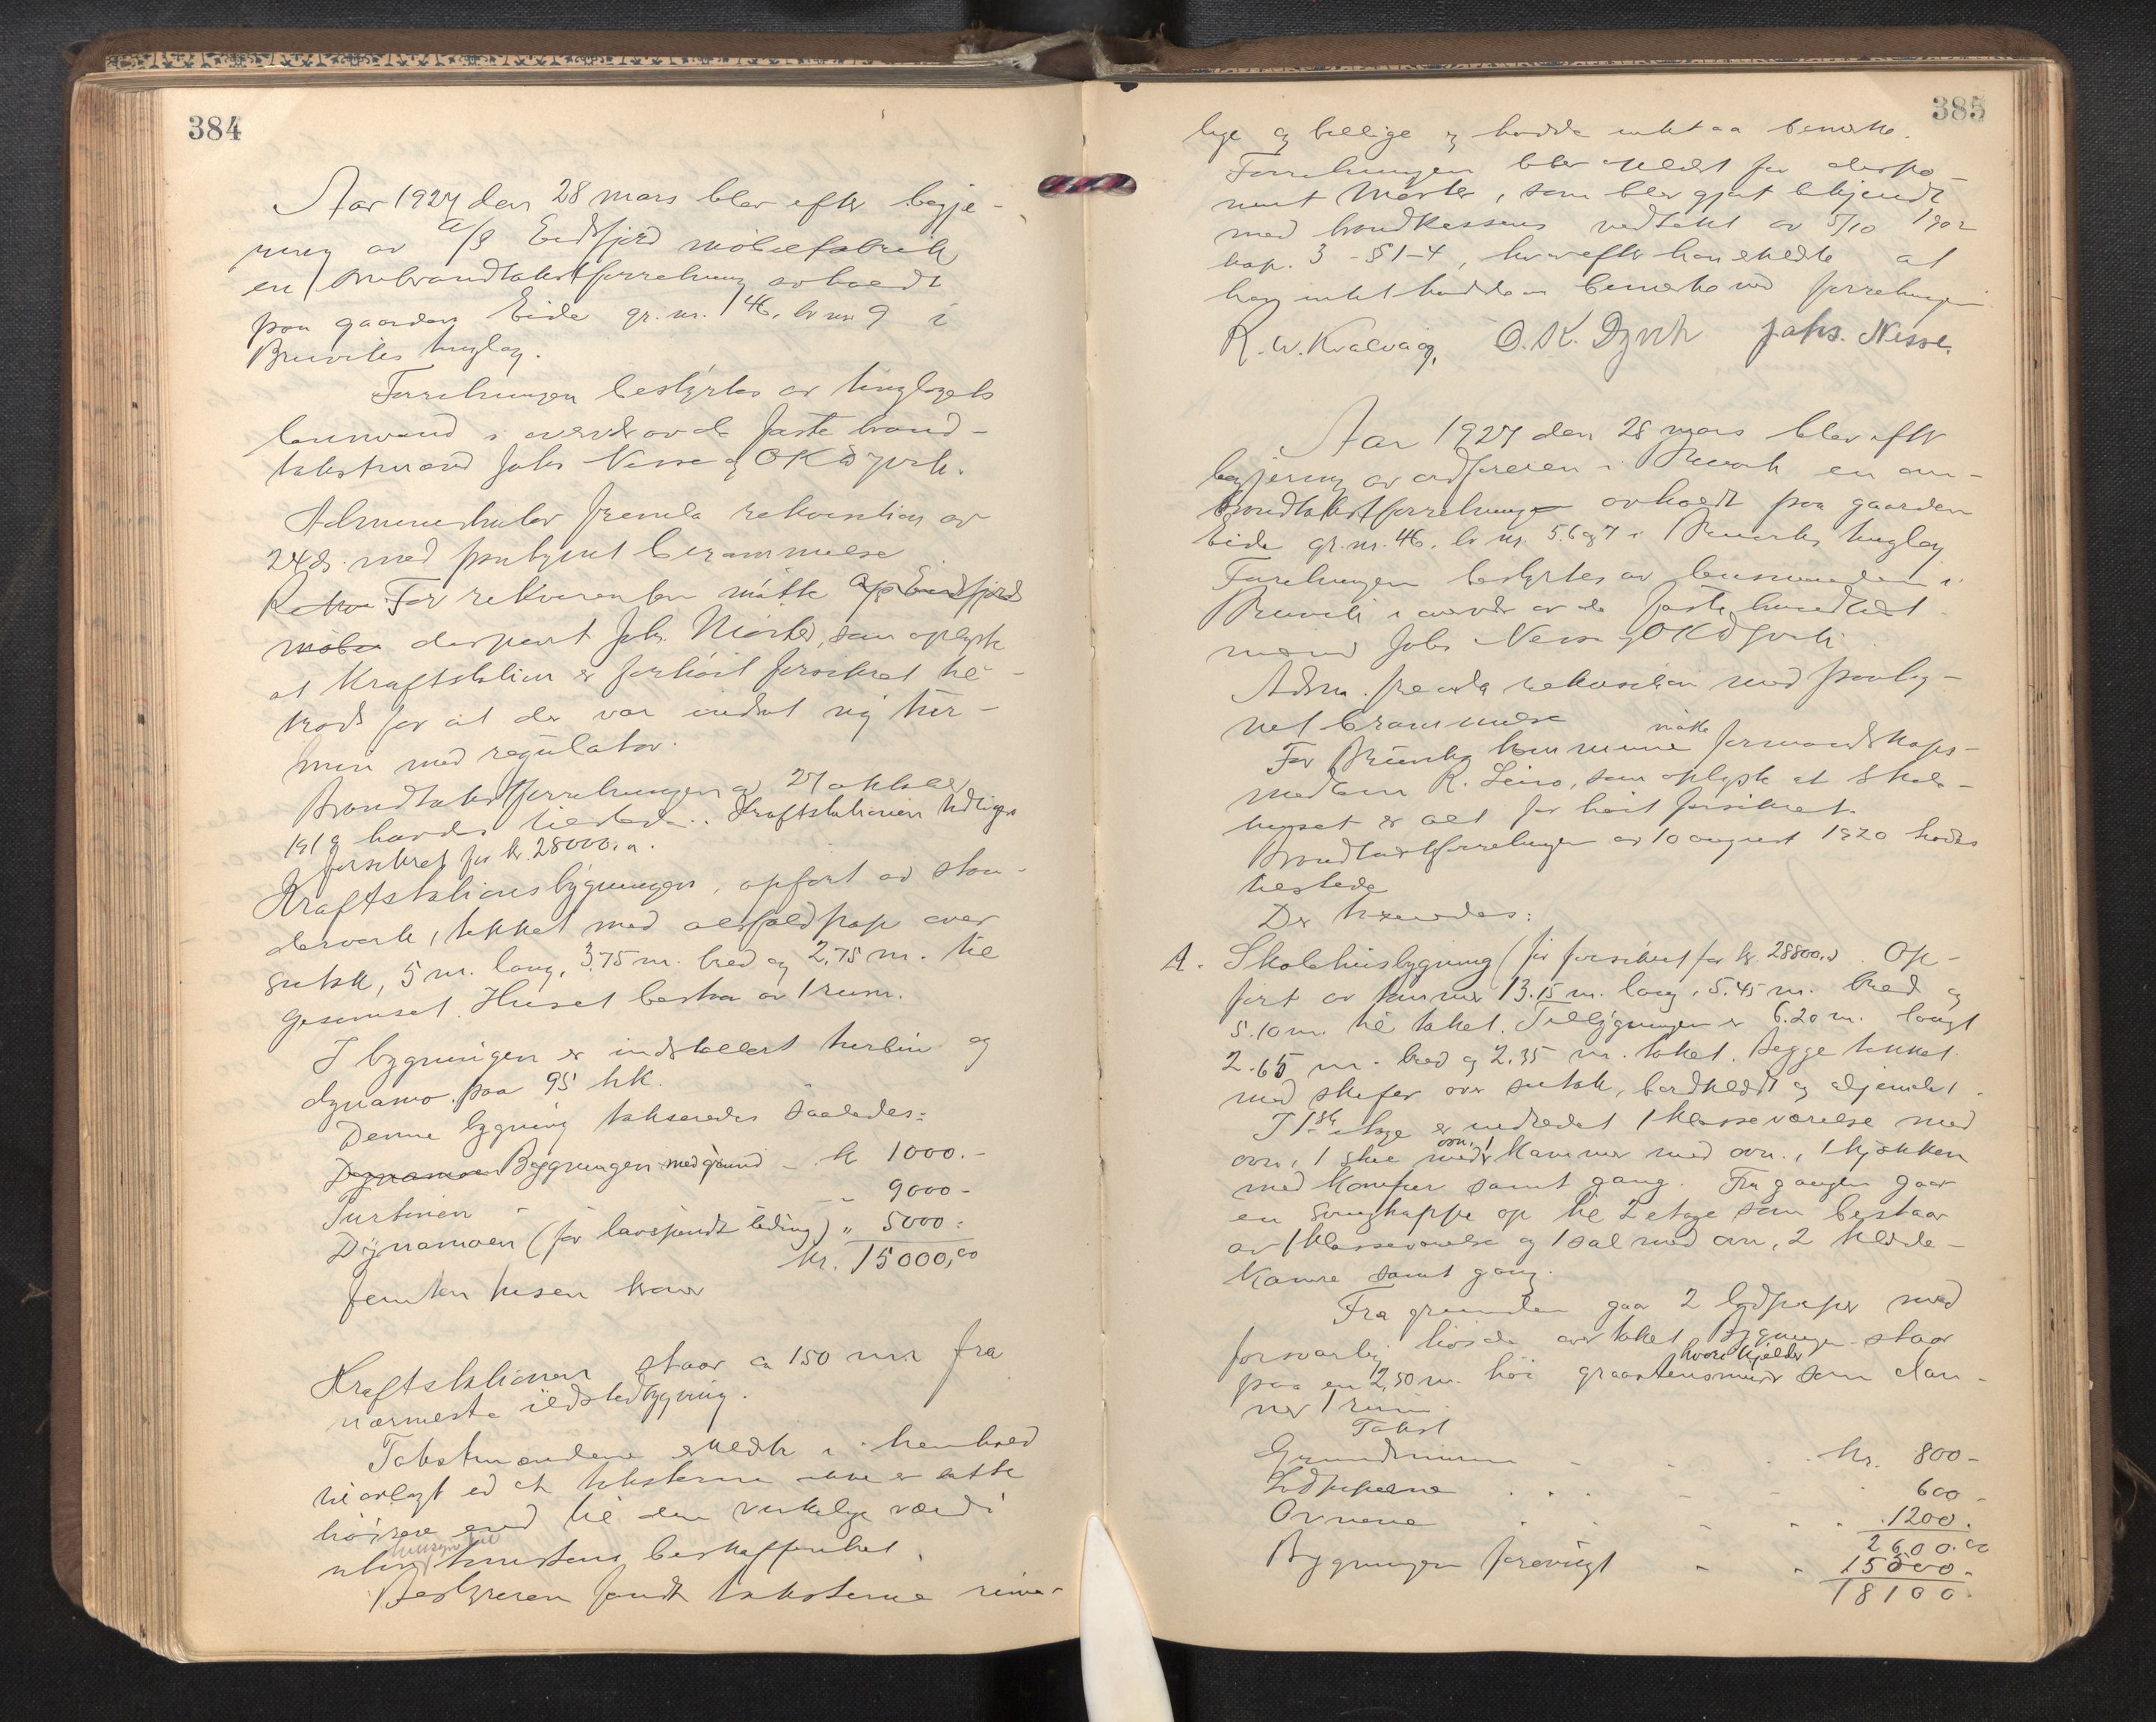 384
Aar 1927 den 28 mars blev efter begjæ-
ring av A/S Eidsfjord møbelfabrik
en ombrandtakstforretning avholdt
paa gaarden Eide gr. nr. 46, br nr 9 i
Bruviks tinglag.
Forretningen bestyrtes av tinglagets
lensmand i overvær av de faste brand-
takstmænd Johs Nesse og O K Dyvik.
Administrator fremla rekvisition av
24 ds. med paategnet berammelse
For rekvirenten møtte A/S Eidsfjord
møbel disponent Johs. Mørter, som oplyste
at Kraftstation er forhøit forsikret til-
trods for at der var indsat ny tur-
bin med regulator.
Brandtakstforretningen av 27 oktober
1919 havdes tilstede. Kraftstationen tidligere
forsikret for kr. 28000.00.
Kraftstationsbygningen, opført av sten-
derverk, tekket med asfaldpap over
sutak, 5 m. lang, 3.75 m. bred og 2.75 m. til
gesimset. Huset bestaar av 1 rum.
I bygningen er indstallert turbin og
dynamo paa 95 hk.
Denne bygning takseredes saaledes:
Dynamoen Bygningen med grund - kr 1000.-
Turbinen - - " 9000-
Dynamoen (for lavspendt leding) " 5000:
kr. 15000,00
femten tusen kroner
Kraftstationen staar ca 150 mr fra
nærmeste ildstedbygning.
Takstmændene erklærte i henhold
til avlagt ed at taksterne ikke er satte
høiere end til den virkelige værdi
uten hensyn til tomtens beskaffenhet.
Bestyreren fandt taksterne rime-
385
lige og billige og hadde intet aa bemerke.
Forretningen blev oplæst for dispo-
nent Mørter, som blev gjort bekjendt
med brandkassens vedtekt av 5/10 1902
kap. 3 - § 1-4, hvorefter han erklærte at
han intet hadde aa bemerke ved forretningen
R. W. Kvalvaag, O. K. Dyvik Johs. Nesse.
Aar 1927 den 28 mars blev efter
begjæring av ordføreren i Bruvik en om-
brandtakstforretning avholdt paa gaarden
Eide gr. nr. 46, br nr. 5.6 og 7 i Bruviks tinglag
Forretningen bestyrtes av lensmanden i
Bruvik i overvær av de faste brandtakst-
mænd Johs Nesse og O K Dyvik
Adm. fremla rekvisition med paateg-
net berammelse
For Bruviks kommune møtte formandskaps-
medlem R. Leiro, som oplyste at skole-
huset er alt for høit forsikret.
Brandtakstforretningen av 10 august 1920 havdes
tilstede
Der takseredes:
A. Skolehusbygning (før forsikret for kr. 28800.00. Op-
ført av tømmer 13.15 m. lang, 5.45 m. bred og
5.10 m. til taket. Tilbygningen er 6.20 m. langt
2.65 m. bred og 2.35 m. taket. Begge tekket
med skifer over sutak, bordklædt og oljemalt.
I 1ste etage er indredet 1 klasseværelse med
ovn, 1 stue med ovn, 1 kammer med ovn, 1 kjøkken
med komfur samt gang. Fra gangen gaar
en svingtrappe op til 2 etage som bestaar
av 1 klasseværelse og 1 sal med ovn, 2 klæde-
kamre samt gang.
Fra grunden gaar 2 lodpiper med
forsvarlig høide over taket. Bygningen staar
paa en 2,50 m. høi graastensmur hvori kjelder som dan-
ner 1 rum.
Takst
Grundmuren - - - kr. 800-
Lodpiperne . . . - - 600-
Ovnene . . - . . 1200.
2600.00
Bygningen forøvrigt - - 15500.
18100.